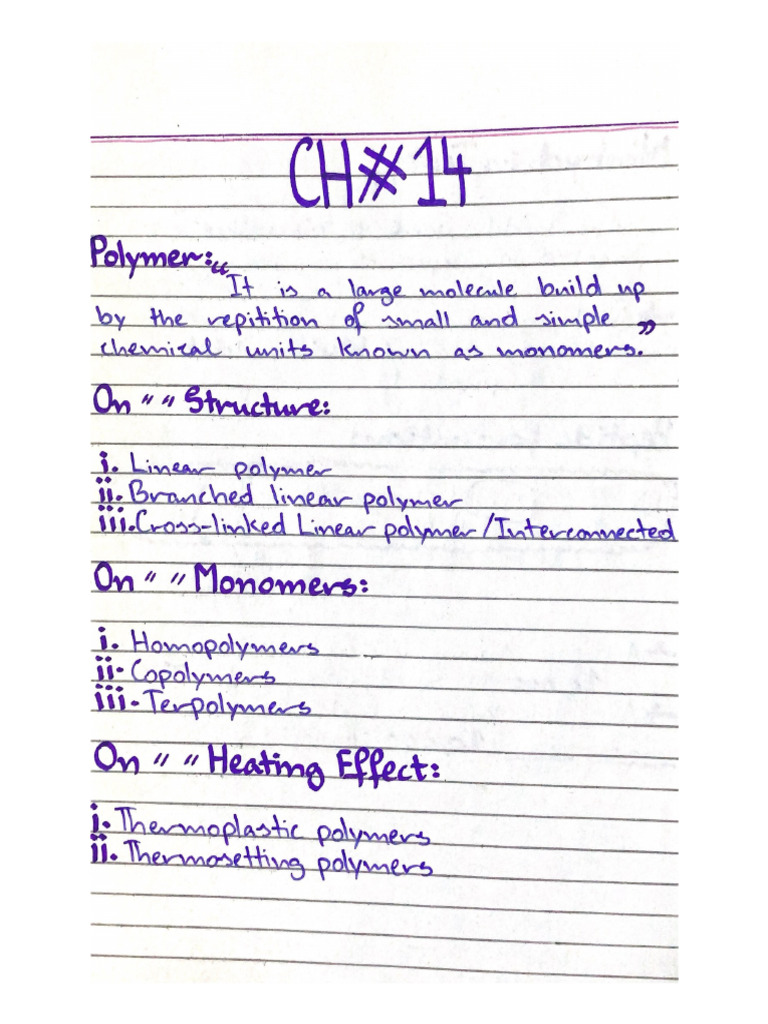 CH#14
Polymer:"
It is a large molecule build up
by the repitition of small and simple
chemical units known as monomers."
On " " Structure:
i. Linear polymer
ii. Branched linear polymer
iii. Cross-linked Linear polymer/Interconnected
On " " Monomers:
i. Homopolymers
ii- Copolymers
iii- Terpolymers
On " " Heating Effect:
i. Thermoplastic polymers
ii. Thermosetting polymers